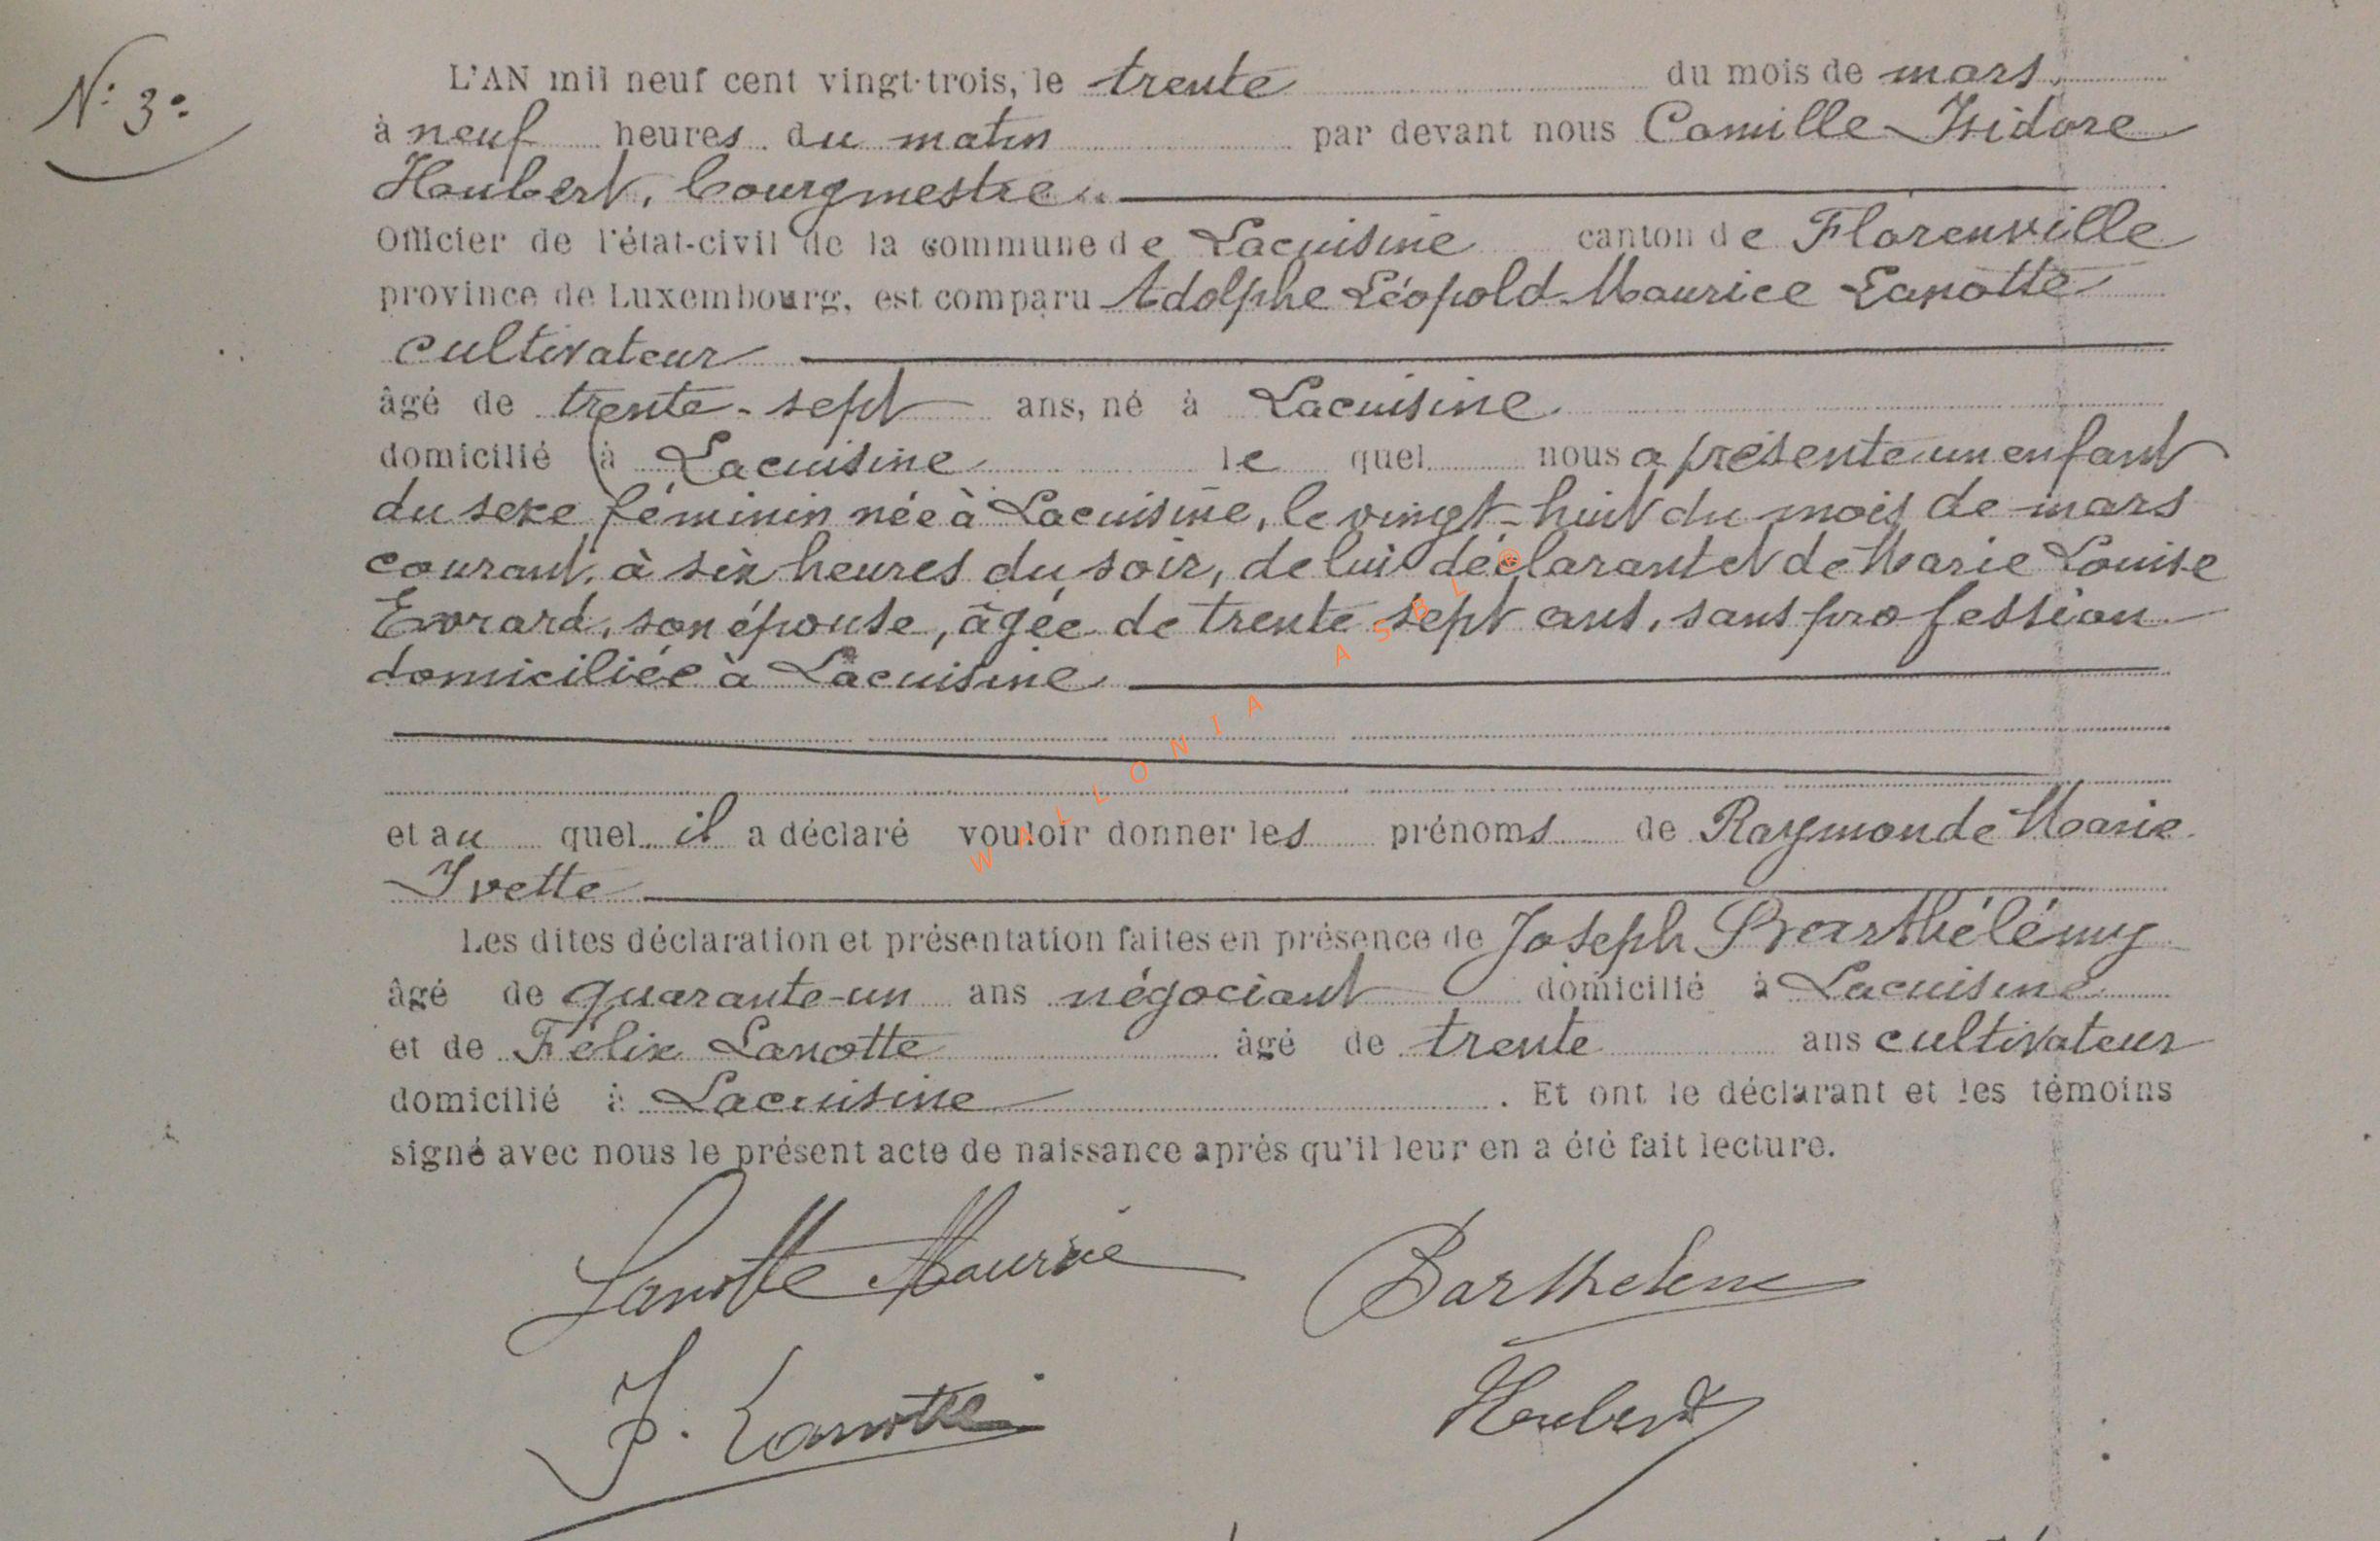 N° 3.
L'AN mil neuf cent vingt-trois, le trente du mois de mars
à neuf heures du matin par devant nous Camille Isidore
Houbert, bourgmestre
Officier de l'état-civil de la commune de Lacuisine canton de Florenville
province de Luxembourg, est comparu Adolphe Léopold Maurice Lanotte
cultivateur
âgé de trente-sept ans, né à Lacuisine
domicilié à Lacuisine le quel nous a présenté un enfant
du sexe féminin née à Lacuisine, le vingt-huit du mois de mars
courant, à six heures du soir, de lui déclarant et de Marie Louise
Evrard, son épouse, âgée de trente sept ans, sans profession
domiciliée à Lacuisine
et au quel il a déclaré vouloir donner les prénoms de Raymonde Marie
Yvette
Les dites déclaration et présentation faites en présence de Joseph Barthélémy
âgé de quarante-un ans négociant domicilié à Lacuisine
et de Félix Lanotte âgé de trente ans cultivateur
domicilié à Lacuisine. Et ont le déclarant et les témoins
signé avec nous le présent acte de naissance après qu'il leur en a été fait lecture.
Lanotte Maurice Barthelem
F. Lanotte Houbert
WALLONIA ASBL ©